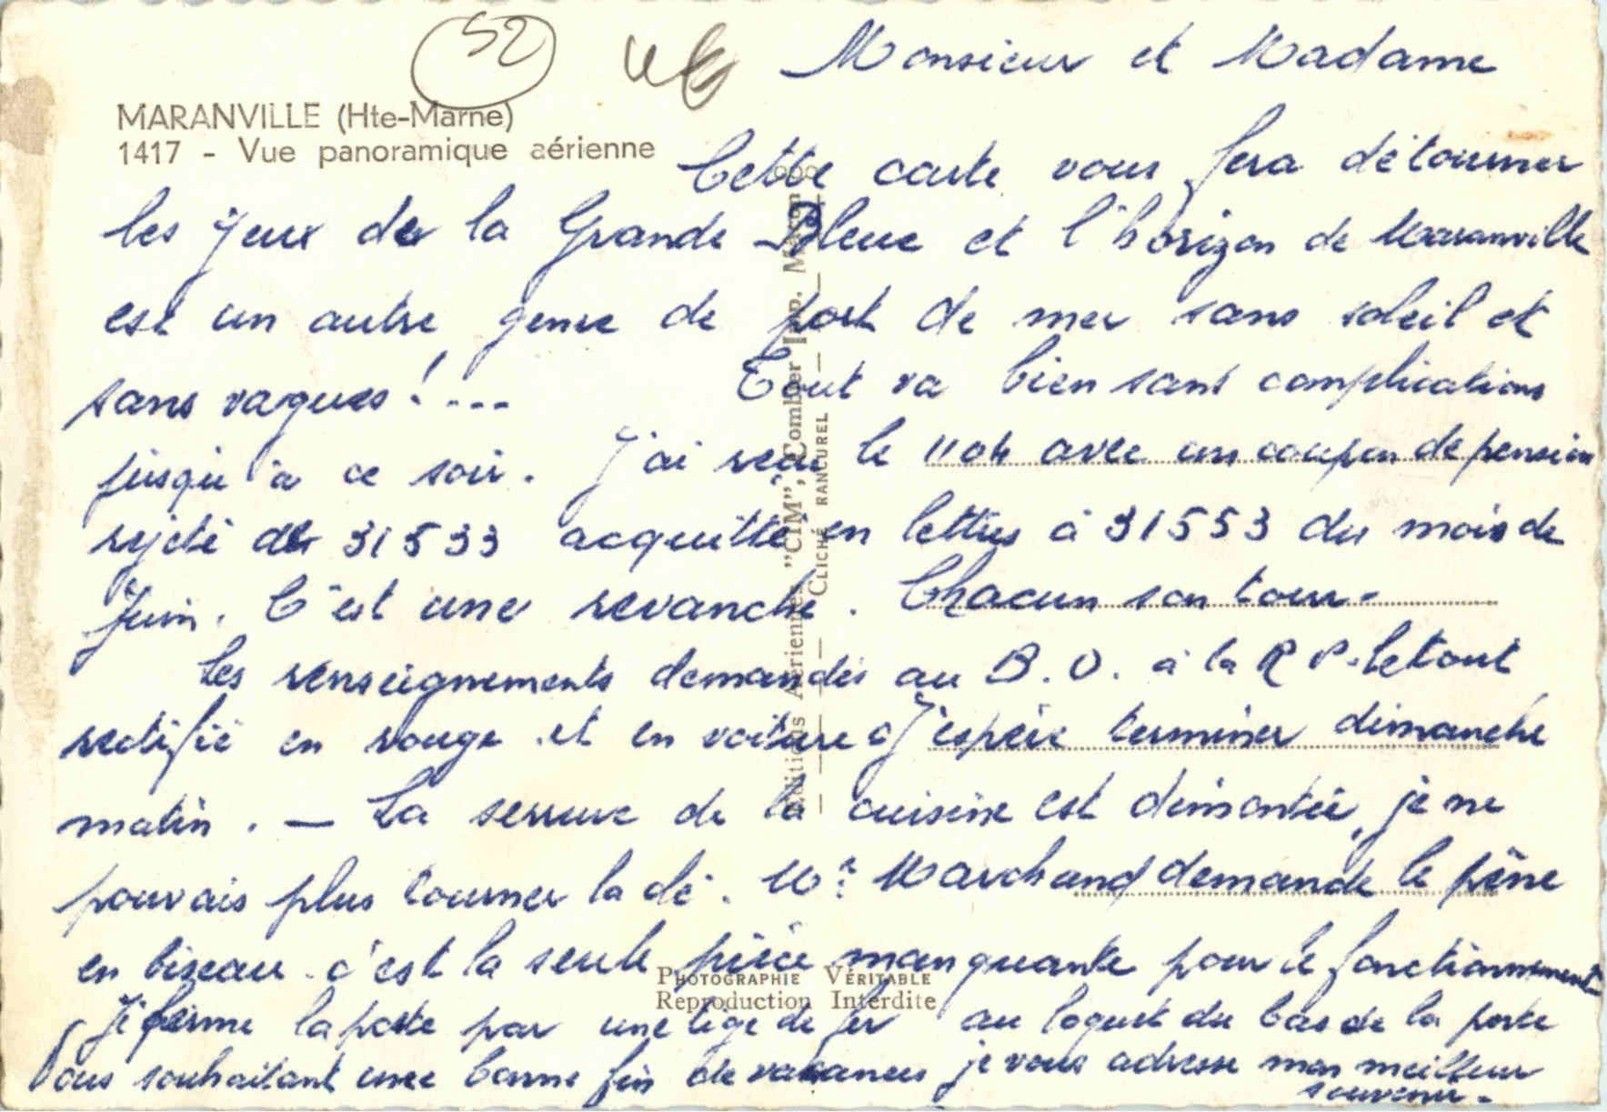 52
Monsieur et Madame
MARANVILLE (Hte-Marne)
1417 - Vue panoramique aérienne
Cette carte vous fera détourner
les yeux de la Grande Bleue et l'horizon de Maranville
est un autre genre de port de mer sans soleil et
sans vagues !...
Tout va bien sans complications
jusqu'à ce soir. J'ai reçu le 1104 avec un coupon de pension
rejeté de 31533 acquitté en lettres à 31553 du mois de
Juin. C'est une revanche. Chacun son tour.
Les renseignements demandés au B.O. à la R P. le tout
rectifié en rouge et en voiture J'espère terminer dimanche
matin. — La serrure de la cuisine est démontée, je ne
pouvais plus tourner la clé. Mr Marchand demande le pêne
en biseau. c'est la seule pièce manquante pour le fonctionnement
Je ferme la porte par une tige de fer au loquet du bas de la porte
Vous souhaitant une bonne fin de vacances je vous adresse mon meilleur
souvenir.
Editions Aériennes "CIM", Combier Imp. Macon
CLICHÉ RANCUREL
PHOTOGRAPHIE VÉRITABLE
Reproduction Interdite